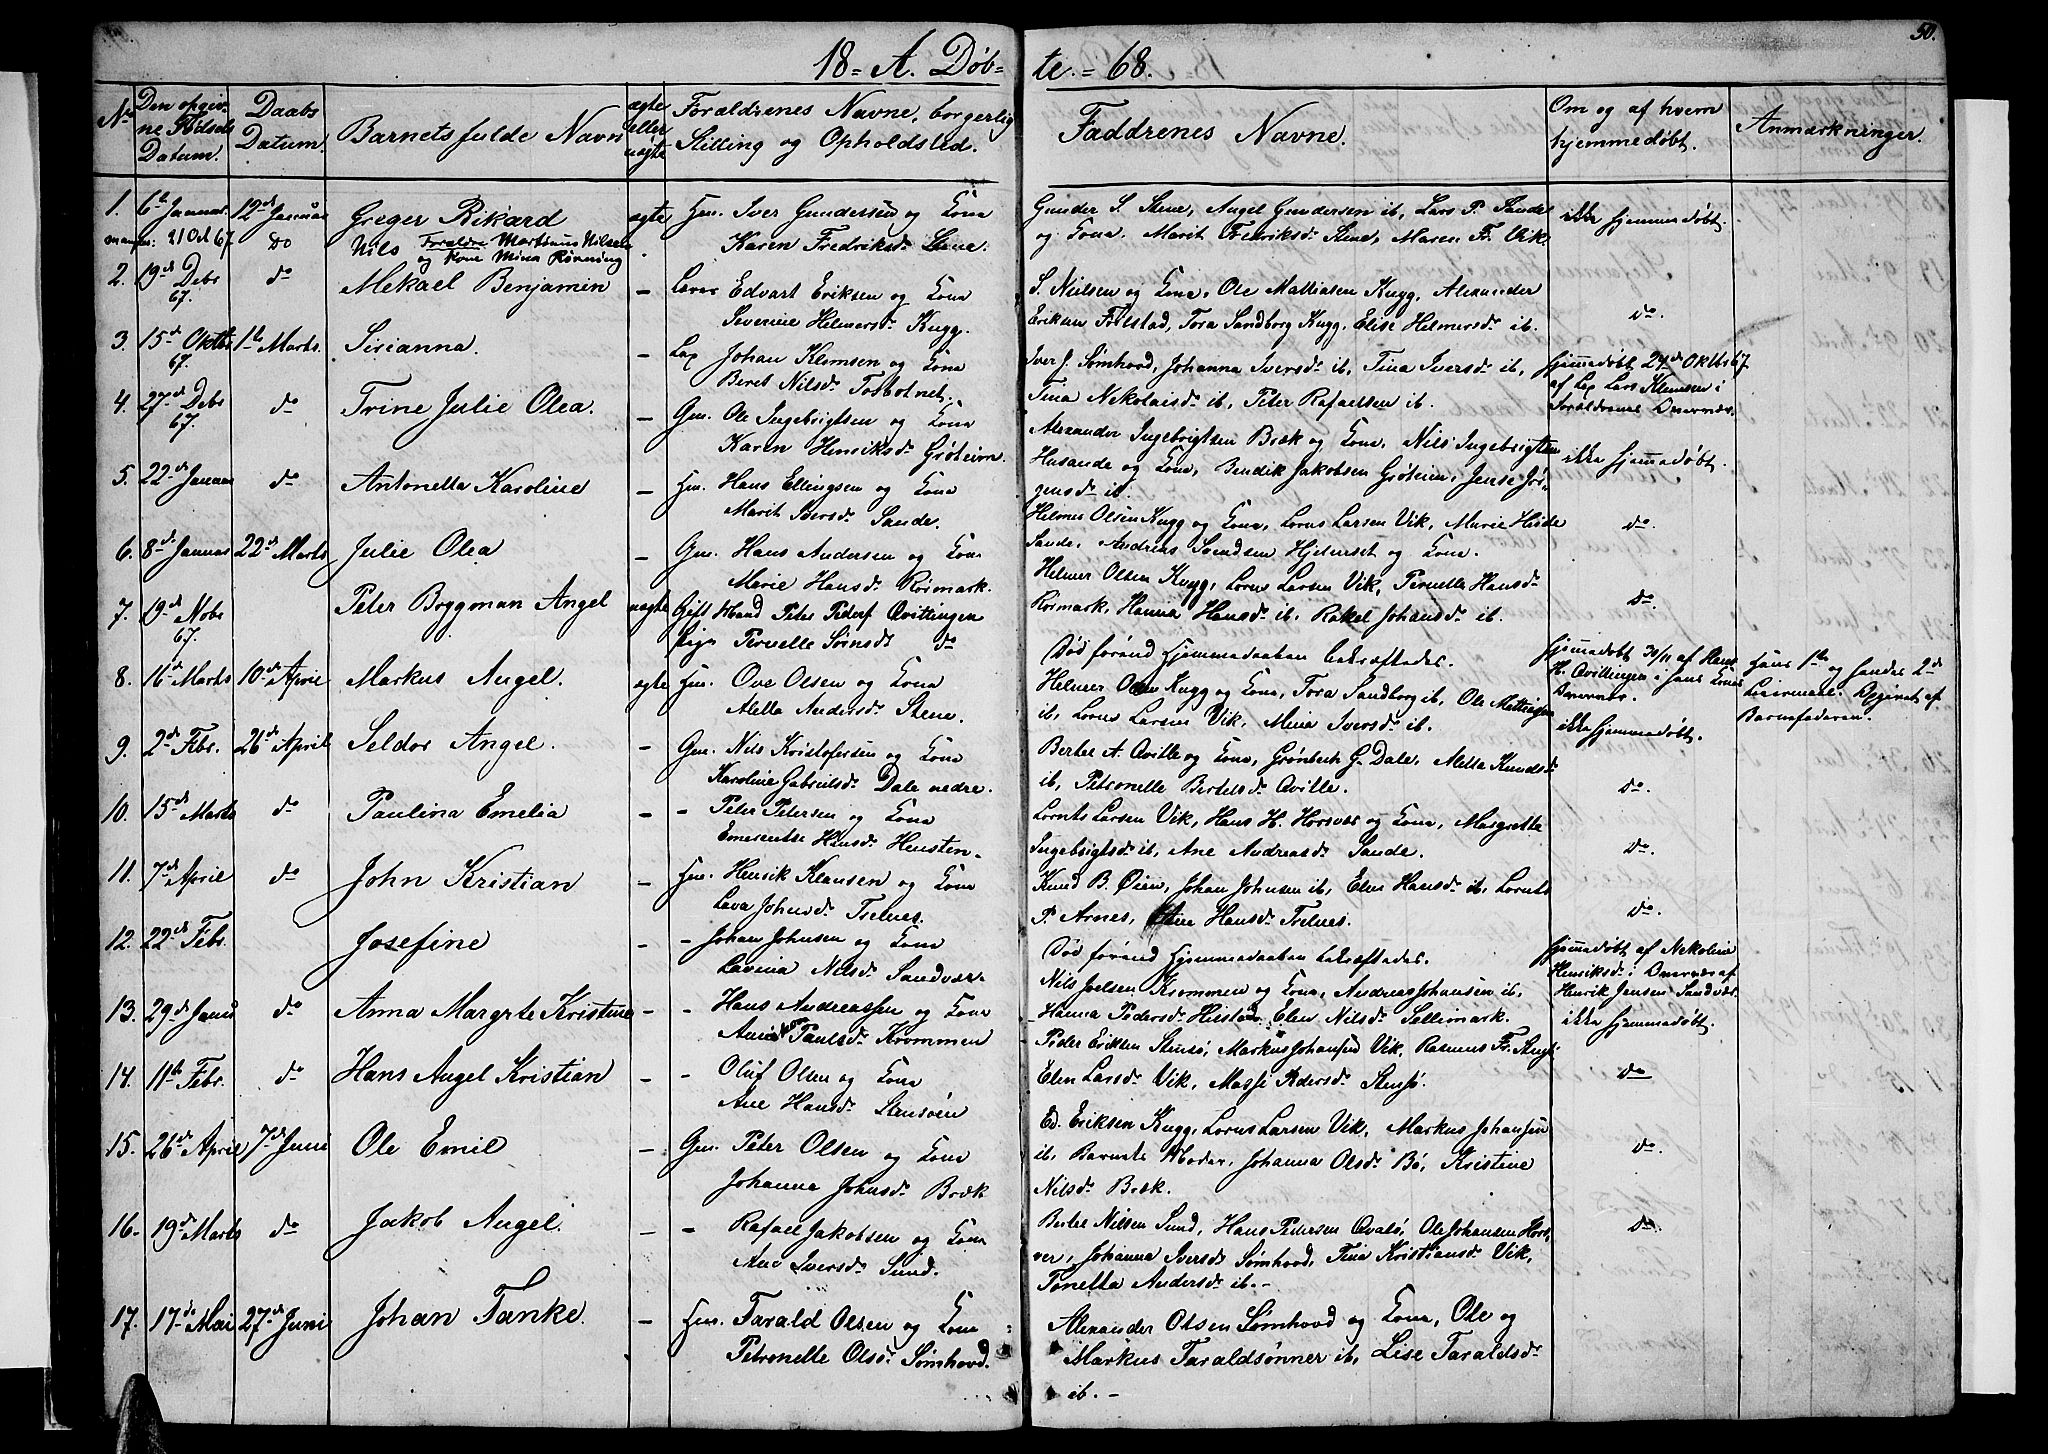 50.
18 = A. Døb=
te. = 68.
No
Den opgiv-
ne Fødsels
Datum.
Daabs
Datum.
Barnets fulde Navn
ægte
eller
uægte
Forældrenes Navne, borgerlig
Stilling og Opholdsted.
Faddrenes Navne.
Om og af hvem
hjemmedøbt.
Anmærkninger.
1. 6te Januar 12te Januar Greger Rikard ægte Hm. Iver Gundersen og Kona
Karen Fredriksdr Stene.
Gunder S. Stene, Angel Gundersen ib, Lars P. Sande
og Kona. Marit Fredriksdr Stene, Maren Fr. Vik.
ikke hjemmedøbt.
21 Oct 67. Do Nils Foraldre Martinus Nilsen
og Kone Mina Rønning
2. 19de Debr 67. do Mekael Benjamin – Edvart Eriksen og Kona
Severine Helmersdr Kugg.
S. Nielsen og Kona, Ole Mathiasen Kugg, Alexander
Eriksen Tilstad, Tora Sandborg Kugg, Elise Helmersdr ib.
do.
3. 15de Oktbr 67. 1ste Marts. Sirianna. – Lap Johan Klemsen og Kona
Beret Nilsdr Tosbotnet.
Iver J. Sømhovd, Johanna Iversdr ib, Tina Iversdr ib,
Tina Nekolaisdr ib, Peter Rafaelsen ib.
hjemmedøbt 24de Oktbr 67
af Lap Lars Klemsen i
Foraldrenes Overvær.
4. 27de Debr 67. do Trine Julie Olea. – Gm. Ole Ingebrigtsen og Kona
Karen Henriksdr Grøteim.
Alexander Ingebrigtsen Bræk og Kona, Nils Ingebrigtsen
Husande og Kona, Bendik Jakobsen Grøteim, Jense Jør-
gensdr ib.
ikke hjemmedøbt.
5. 22de Januar do Antonetta Karoline – Hm. Hans Ellingsen og Kona
Marit Iversdr Sande.
Helmer Olsen Kugg og Kona, Lorns Larsen Vik, Marie
Sande, Andreas Svendsen og Kona.
do.
6. 8de Januar 22de Marts Julie Olea – Gm. Hans Andersen og Kona
Marie Hansdr Rørmark.
Helmer Olsen Kugg, Lorns Larsen Vik, Pernelle Hansdr
Rørmark, Hanna Hansdr ib, Rakel Johansdr ib.
do.
7. 19de Nobr 67. Peter Bryggman Angel uægte Gift Mand Peter Pedersen Qvittingen
Pige Pernelle Sørensdr do
Død førend Hjemmedaaben bekræftedes.
hjemmedøbt 30/11 af Hans
H. Qvittingen i hans Kones
Overvær.
Hans 1ste og hendes 2de
Leiermaal. Opgivet af
Barnefaderen.
8. 16de Marts 10de April Markus Angel. ægte Hm. Ove Olsen og Kona
Aletta Andersdr Stene.
Helmer Olsen Kugg og Kona, Tora Sandborg ib, Ole Mathiasen
ib, Lorns Larsen Vik, Mina Iversdr ib.
ikke hjemmedøbt.
9. 2de Febr. 26de April Seldor Angel. – Gm. Nils Kristofersen og Kona
Karoline Gabrielsdr Dale nedre.
Berter A. Qville og Kona, Grønbech G. Dale, Aletta Knudsdr
ib, Petronelle Bertelsdr Qville.
do.
10. 15de Marts do Paulina Emelia – – Peter Petersen og Kona
Emerentse Hansdr Hensten.
Lornts Larsen Vik, Hans H. Horsvær og Kona, Margrethe
Ingebrigtsdr ib, Ane Andreasdr Sande.
do.
11. 7de April do John Kristian – Hm. Henrik Klausen og Kona
Lava Johnsdr Trelnes.
Knud B. Øien, Johan Johnsen ib, Elen Hansdr ib, Lornts
P. Arnes, Ane Hansdr Trelnes.
do.
12. 22de Febr. Josefine – – Johan Johnsen og Kona
Lavina Nilsdr Sandvær.
Død førend Hjemmedaaben bekræftedes.
hjemmedøbt af Nekoline
Henriksdr i Overvær af
Henrik Jensen Sandvær.
13. 29de Janu do Anna Margrte Kristine – – Hans Andreassen og Kona
Paulsdr Krommen
Nils Joelsen Krommen og Kona, Andreas Johansen ib,
Hanna Pedersdr Hilstad, Elen Nilsdr Sellimark.
ikke hjemmedøbt.
14. 11te Febr. do Hans Angel Kristian – – Oluf Olsen og Kona
Ane Hansdr Stensøen
Peder Eriksen Stensø, Markus Johansen Vik, Rasmus Fr.
Elen Larsdr Vik, Masse Pedersdr Stensø.
do
15. 26de April 7de Juni Ole Emil – Gm. Peter Olsen og Kona
Johanna Johnsdr Bræk
Ed. Eriksen Kugg, Lorns Larsen Vik, Markus Johansen
ib, Barnets Moder, Johanna Olsdr Bø, Kristine
Nilsdr Bræk.
do.
16. 19de Marts do Jakob Angel. – – Rafael Jakobsen og Kona
Ane Iversdr Sund.
Berter Nilsen Sund, Hans Petersen Qvalø, Ole Johansen Hors-
vær, Johanna Iversdr Sømhovd, Tina Kristiansdr Vik,
Tonetta Andersdr ib.–
do.
17. 17de Mai 27de Juni Johan Tanke. – Hm. Tarald Olsen og Kona
Petronelle Olsdr Sømhovd.
Alexander Olsen Sømhovd og Kona, Ole og
Markus Taraldsønner ib, Lise Taraldsdr
ib.–